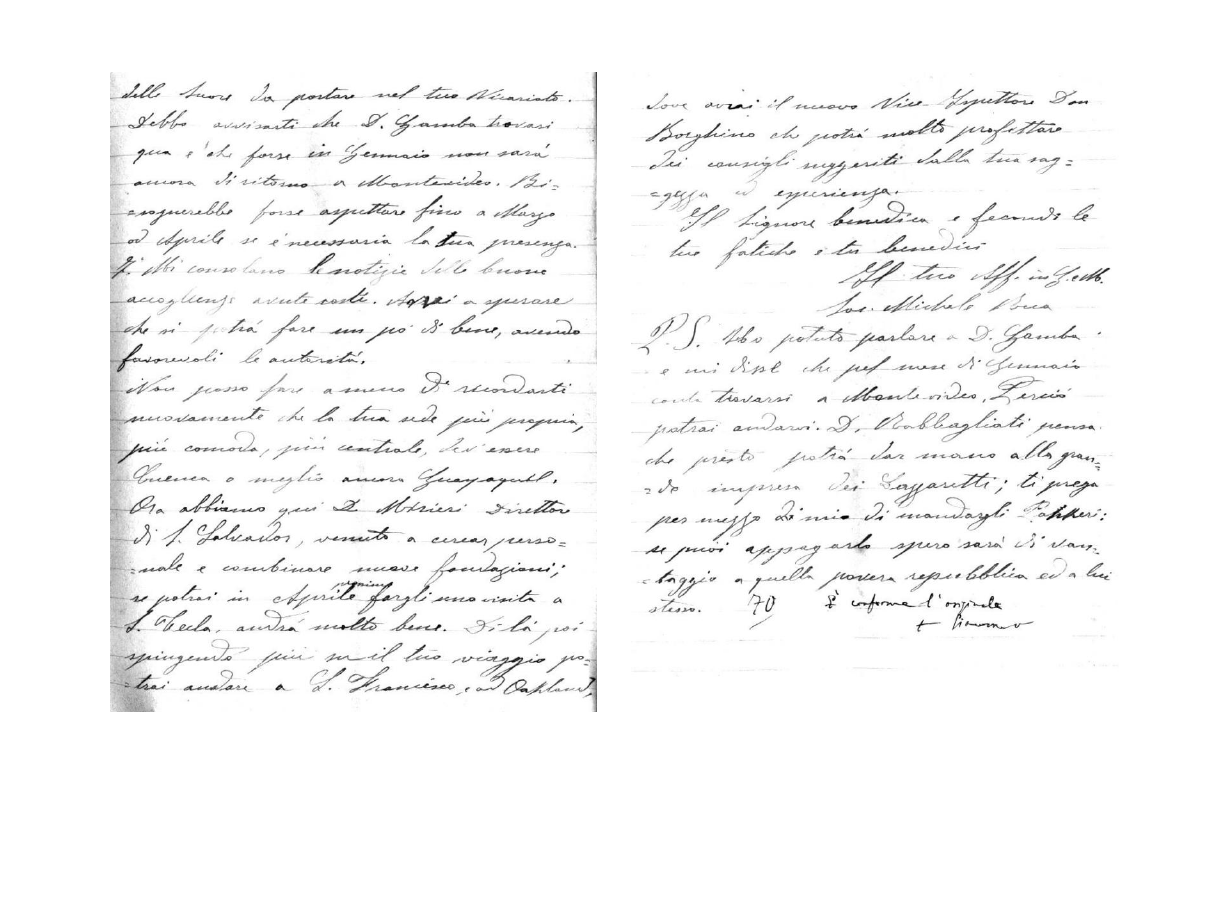 delle Suore da portare nel tuo Vicariato.
Debbo avvisarti che D. Gamba trovasi
qua e che forse in Gennaio non sarà
ancora di ritorno a Montevideo. Bi=
=sognerebbe forse aspettare fino a Marzo
od Aprile se è necessaria la tua presenza.
Mi consolano le notizie delle buone
accoglienze avute costì. a sperare
che si potrà fare un po' di bene, avendo
favorevoli le autorità.
Non posso fare a meno di ricordarti
nuovamente che la tua sede più propria,
più comoda, più centrale, dev'essere
Cuenca o meglio ancora Guayaquil.
Ora abbiamo qui D. Misieri Direttore
di S. Salvador, venuto a cercar perso=
=nale e combinare nuove fondazioni;
se potrai in Aprile prossimo fargli una visita a
S. Tecla, andrà molto bene. Di là poi
spingendo più su il tuo viaggio po=
=trai andare a S. Francisco, ad Oakland,
dove avrai il nuovo Vice Ispettore Don
Borghino che potrà molto profittare
dei consigli suggeriti dalla tua sag=
=gezza ed esperienza.
Il Signore benedica e fecondi le
tue fatiche e tu benedici
Il tuo Aff. in G. e M.
Sac. Michele Rua
P.S. Ho potuto parlare a D. Gamba
e mi disse che pel mese di Gennaio
conta trovarsi a Montevideo. Perciò
potrai andarvi. D. Rabbagliati pensa
che presto potrà dar mano alla gran=
=de impresa dei Lazzaretti; ti prega
per mezzo mio di mandargli
se puoi appagarlo spero sarà di van=
=taggio a quella povera repubblica ed a lui
stesso. 70 È conforme l'originale
+ Giacomo v